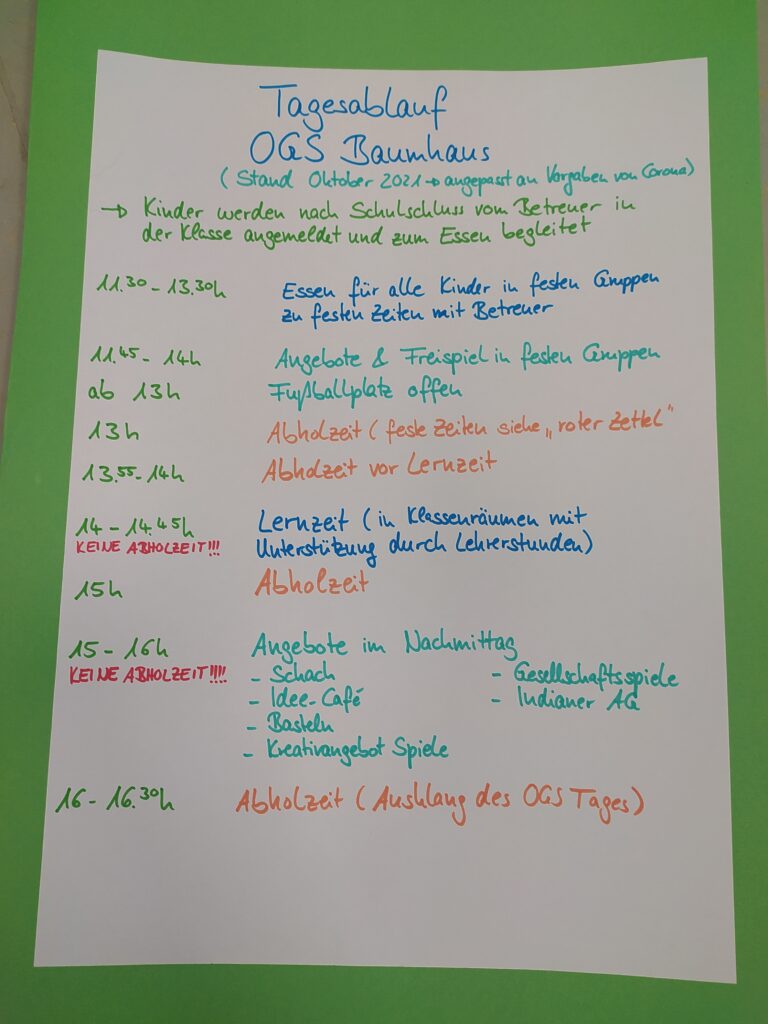 Tagesablauf
OGS Baumhaus
(Stand Oktober 2021 → angepasst an Vorgaben von Corona)
→ Kinder werden nach Schulschluss vom Betreuer in
der Klasse angemeldet und zum Essen begleitet
11.30 - 13.30h Essen für alle Kinder in festen Gruppen
zu festen Zeiten mit Betreuer
11.45 - 14h Angebote & Freispiel in festen Gruppen
ab 13h Fußballplatz offen
13h Abholzeit (feste Zeiten siehe „roter Zettel"
13.55 - 14h Abholzeit vor Lernzeit
14 - 14.45h Lernzeit (in Klassenräumen mit
KEINE ABHOLZEIT!!! Unterstützung durch Lehrerstunden)
15h Abholzeit
15 - 16h Angebote im Nachmittag
KEINE ABHOLZEIT!!!! - Schach - Gesellschaftsspiele
- Idee-Café - Indianer AG
- Basteln
- Kreativangebot Spiele
16 - 16.30h Abholzeit (Ausklang des OGS Tages)